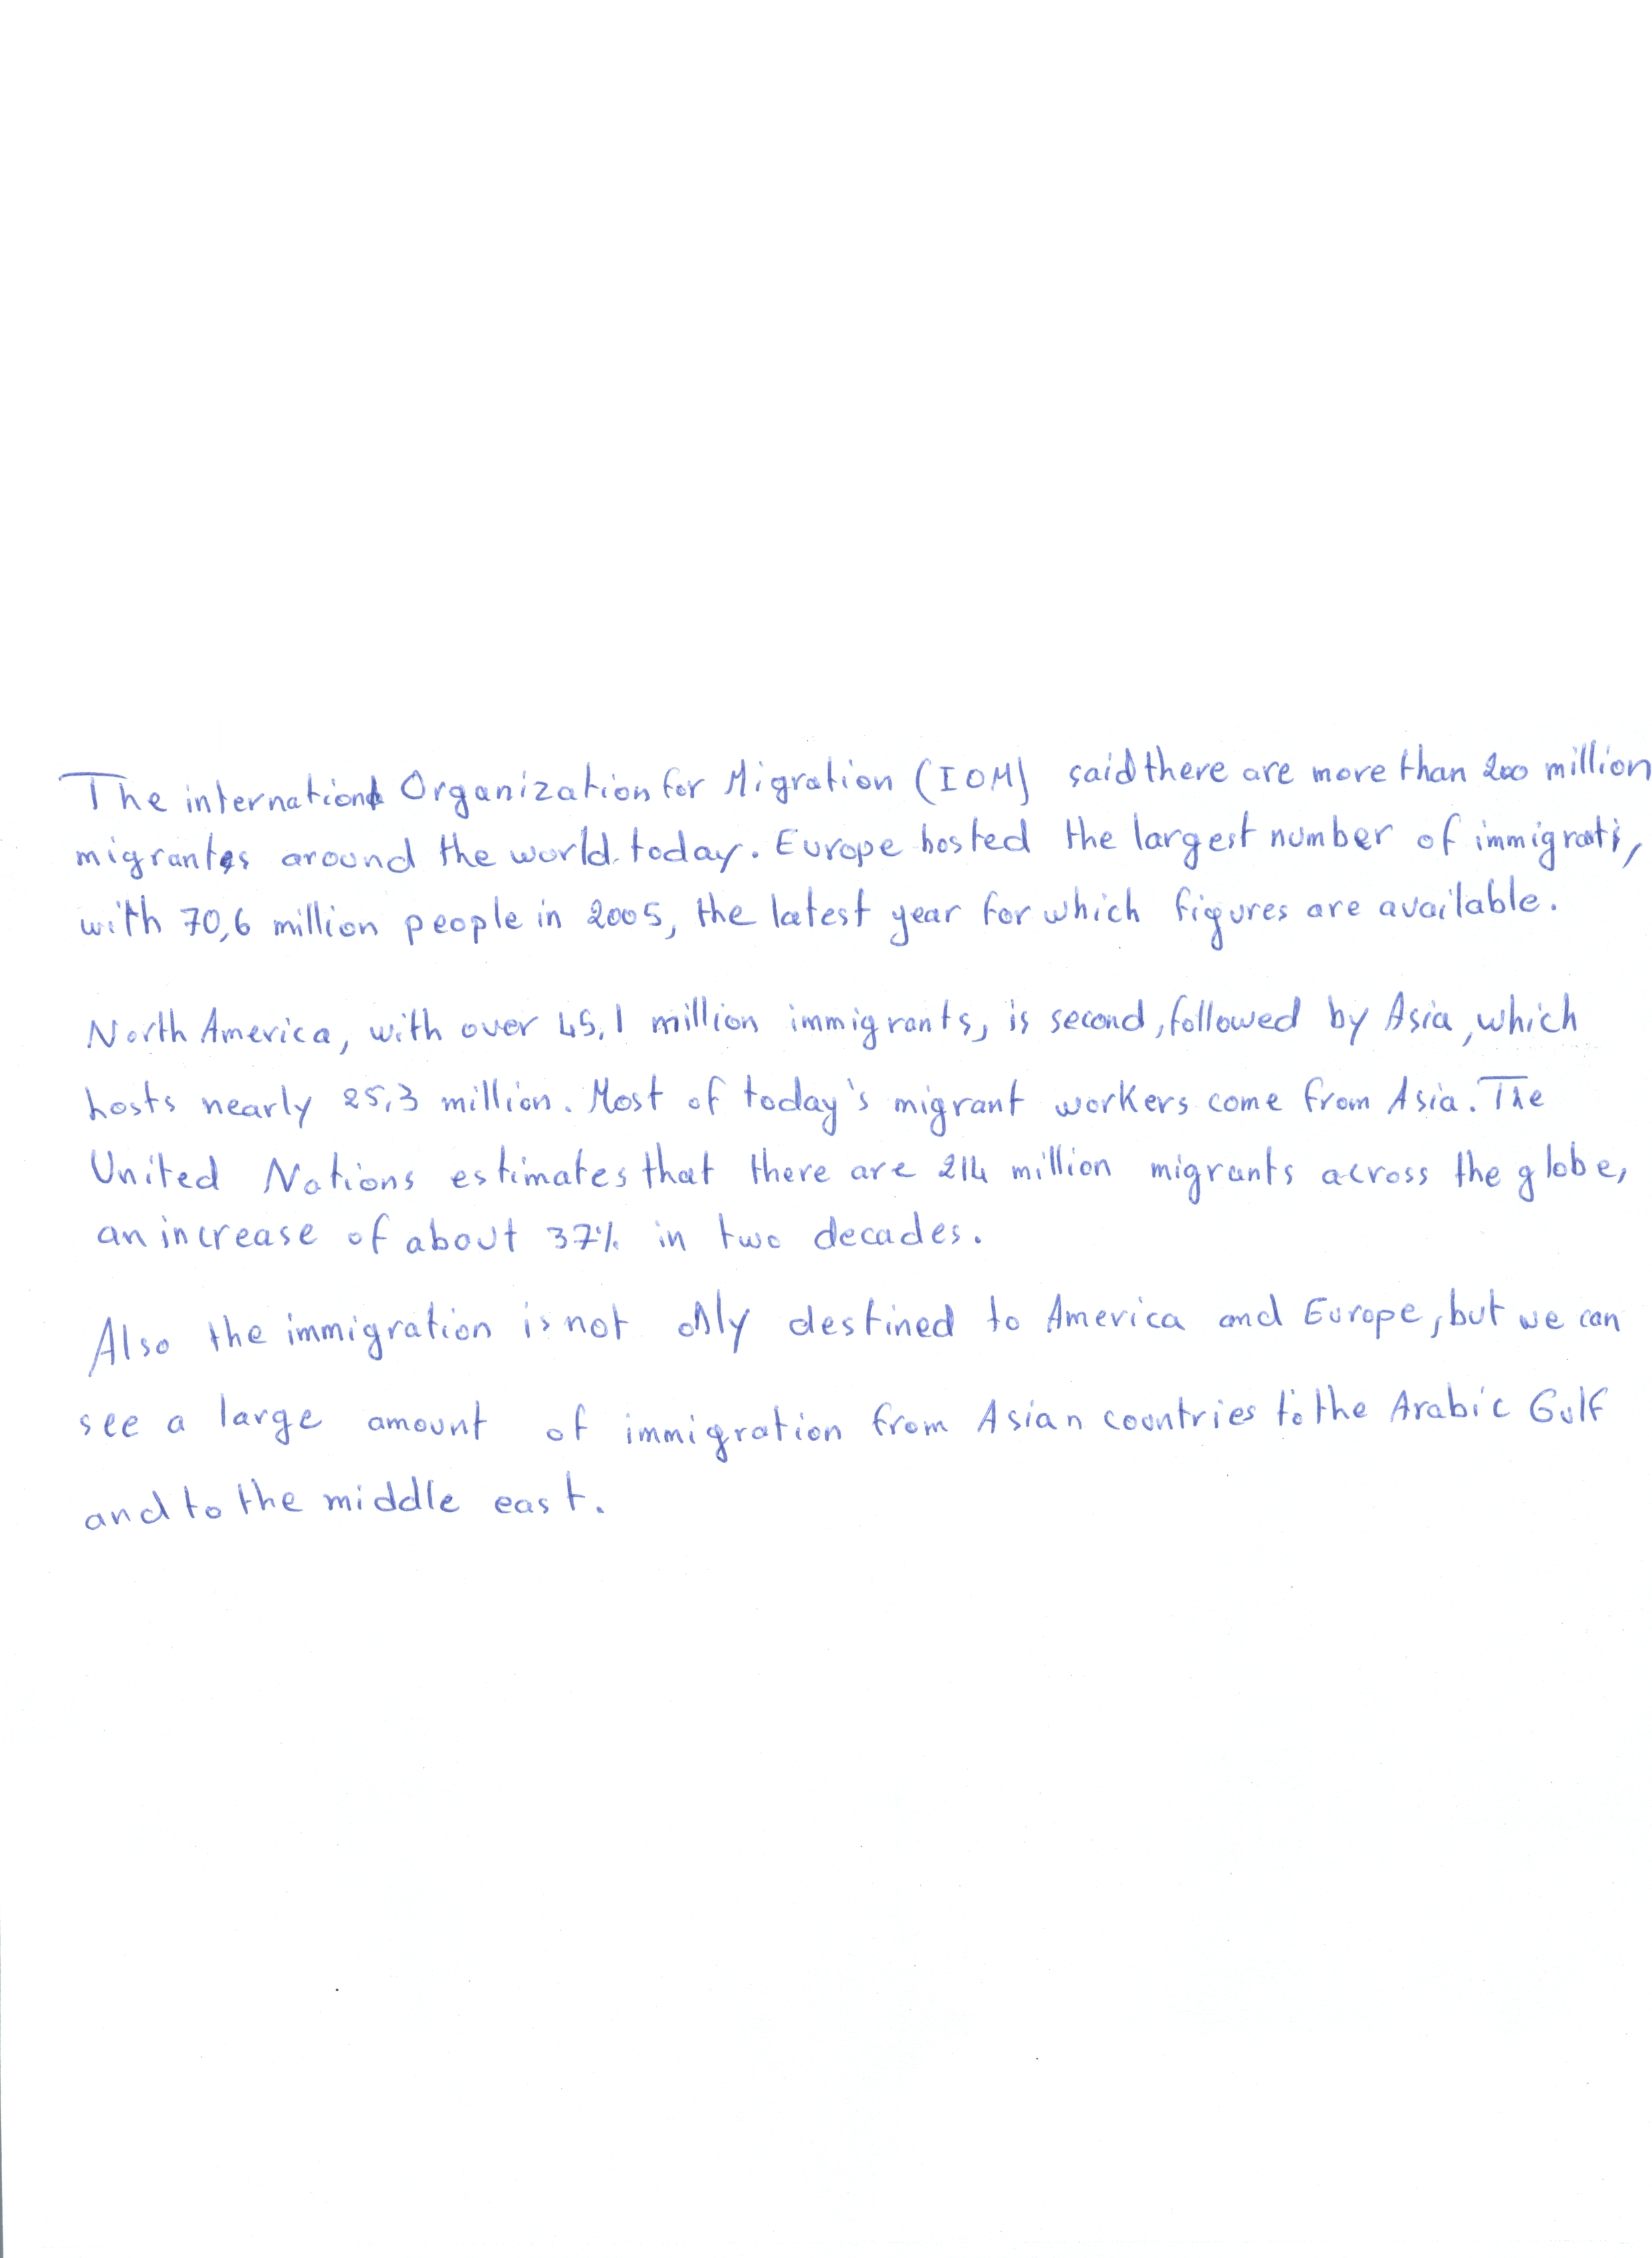 The international Organization for Migration (IOM) said there are more than 200 million
migrants around the world today. Europe hosted the largest number of immigrati,
with 70,6 million people in 2005, the latest year for which figures are available.
North America, with over 45,1 million immigrants, is second, followed by Asia, which
hosts nearly 25,3 million. Most of today's migrant workers come from Asia. The
United Nations estimates that there are 214 million migrants across the globe,
an increase of about 37% in two decades.
Also the immigration is not only destined to America and Europe, but we can
see a large amount of immigration from Asian countries to the Arabic Gulf
and to the middle east.